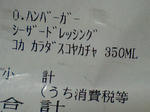 0.ハンバーガー
シーザードレッシング
コカ カラダスコヤカチャ 350ML
小 計
(うち消費税等
合 計